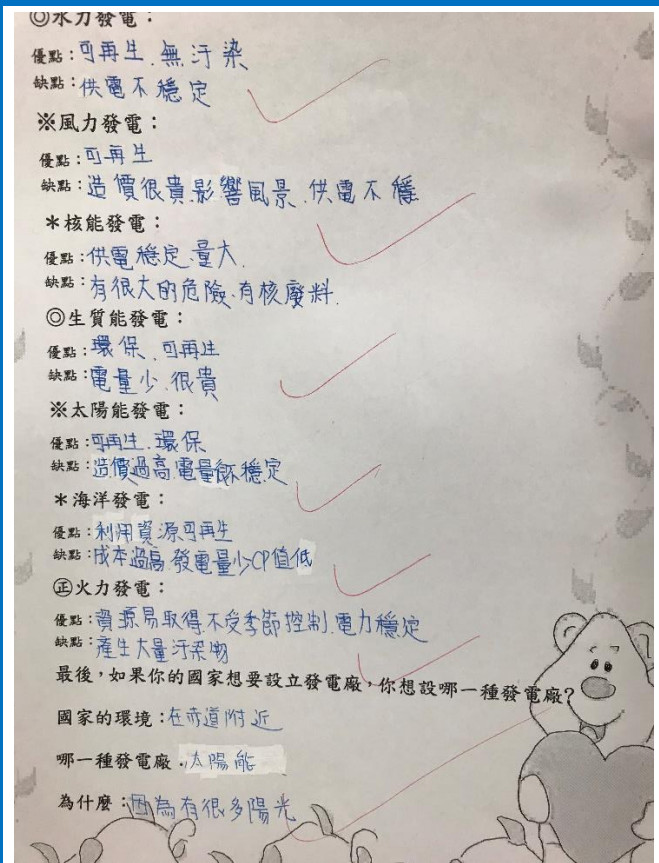 ◎水力發電：
優點：可再生、無汙染
缺點：供電不穩定
※風力發電：
優點：可再生
缺點：造價很貴.影響風景、供電不穩
＊核能發電：
優點：供電穩定、量大.
缺點：有很大的危險、有核廢料.
◎生質能發電：
優點：環保、可再生
缺點：電量少、很貴
※太陽能發電：
優點：可再生、環保
缺點：造價過高.電量不穩定
＊海洋發電：
優點：利用資源可再生
缺點：成本過高.發電量少CP值低
㊣火力發電：
優點：資源易取得.不受季節控制.電力穩定
缺點：產生大量汙染物
最後，如果你的國家想要設立發電廠，你想設哪一種發電廠？
國家的環境：在赤道附近
哪一種發電廠：太陽能
為什麼：因為有很多陽光